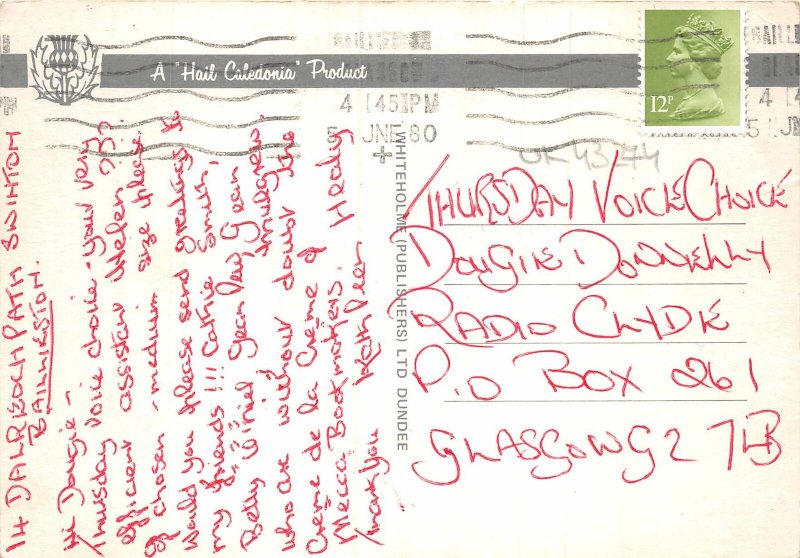 A "Hail Caledonia" Product
BAILLIE
GOW
4 45 PM
5 JNE 80
12P
UK 43274
WHITEHOLME (PUBLISHERS) LTD DUNDEE
THURSDAY VOICE CHOICE
DOUGIE DONNELLY
RADIO CLYDE
P.O BOX 261
GLASGOW G2 7LB
14 DALRIOCH PATH SWINTON
BAILLIESTON.
Hi Dougie -
Thursday voice choice - your very
efficient assistant Helen 23?
If chosen - medium size please.
Would you please send greetings to
my friends !!! Cathie Smith,
Betty Jean Jean
who are without doubt the
Crème de la Crème of
Mecca Bookmakers.
Thank you Kathleen Healy